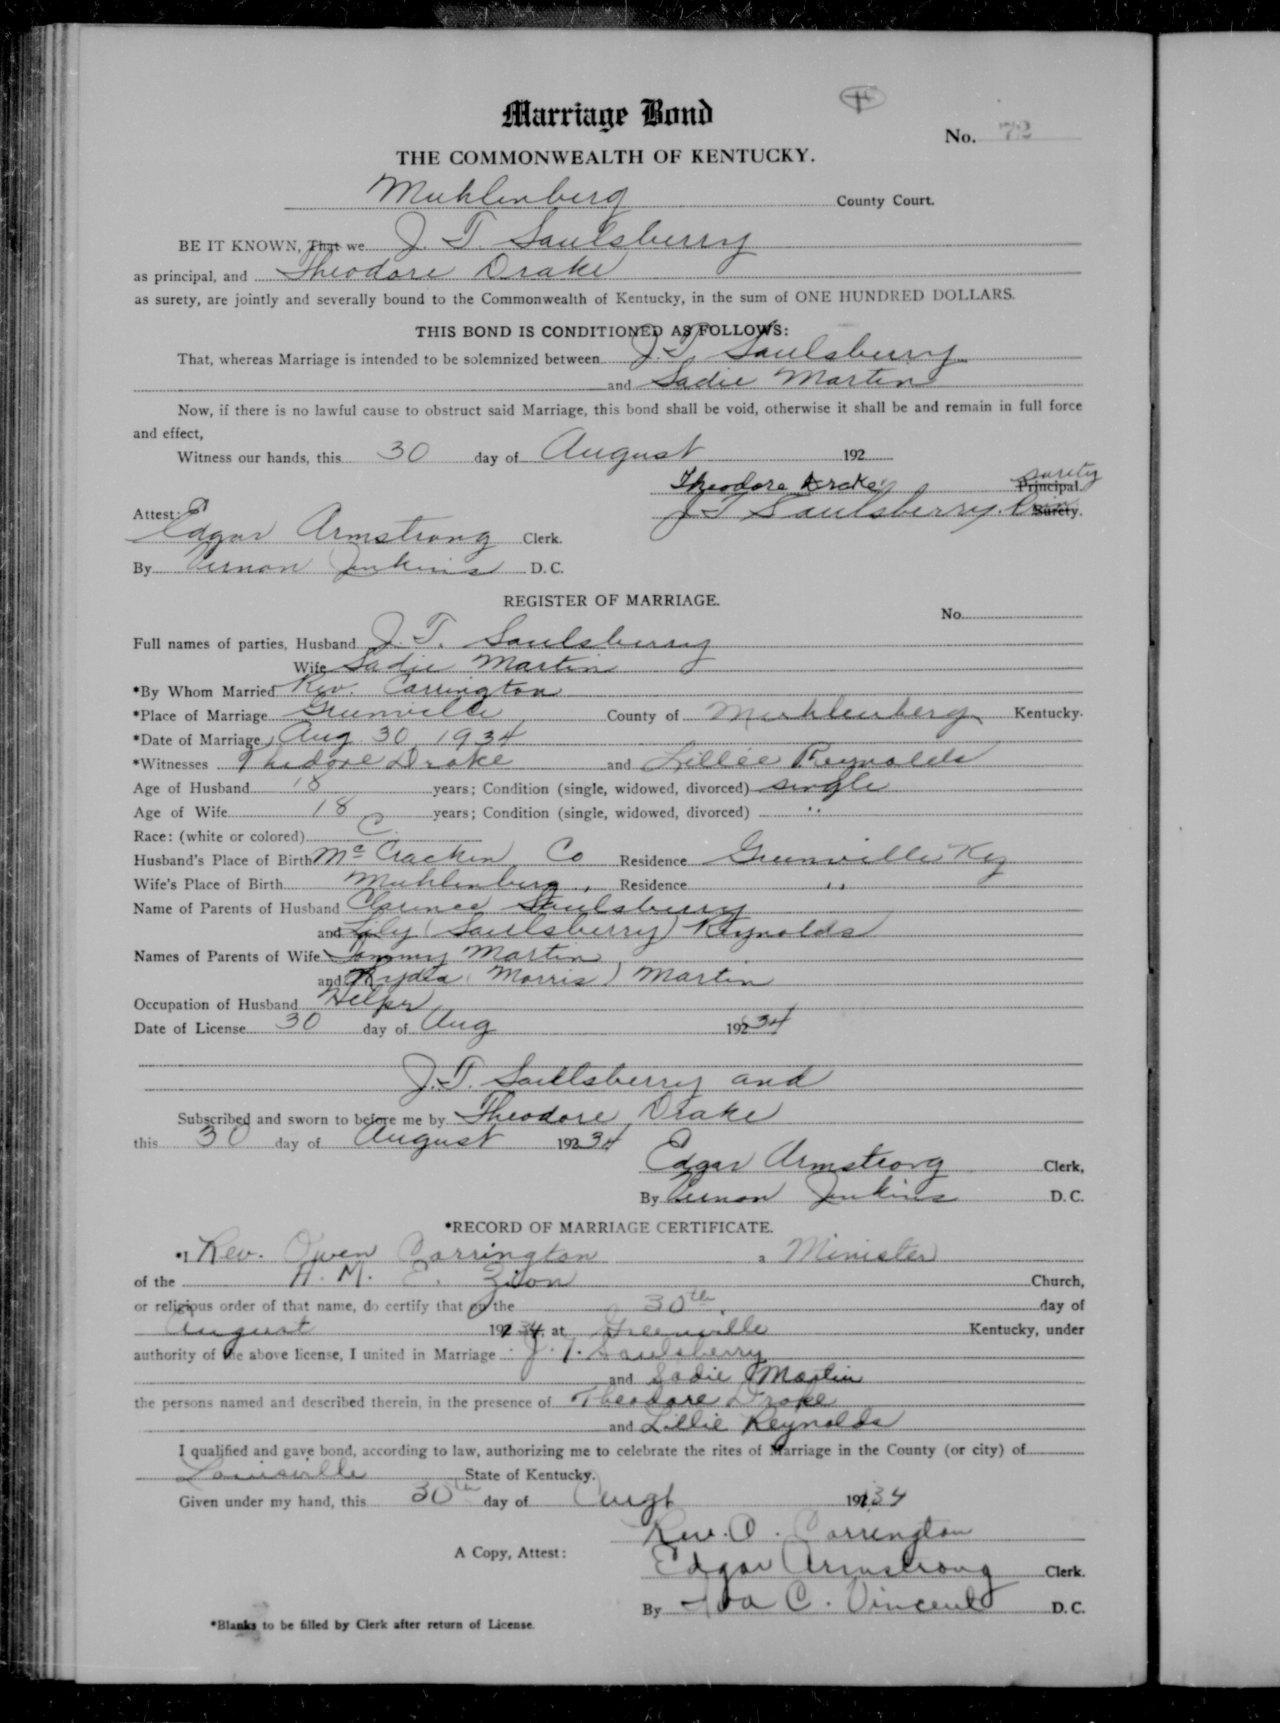 Marriage Bond
No. 72
THE COMMONWEALTH OF KENTUCKY.
Muhlenberg County Court.
BE IT KNOWN, That we J. T. Saulsberry
as principal, and Theodore Drake
as surety, are jointly and severally bound to the Commonwealth of Kentucky, in the sum of ONE HUNDRED DOLLARS.
THIS BOND IS CONDITIONED AS FOLLOWS:
That, whereas Marriage is intended to be solemnized between J. T. Saulsberry
and Sadie Martin
Now, if there is no lawful cause to obstruct said Marriage, this bond shall be void, otherwise it shall be and remain in full force
and effect,
Witness our hands, this 30 day of August 192
Theodore Drake Principal surety
J T Saulsberry. Prin Surety.
Attest: Edgar Armstrong Clerk.
By Vernon Jenkins D. C.
REGISTER OF MARRIAGE.
No.
Full names of parties, Husband J. T. Saulsberry
Wife Sadie Martin
*By Whom Married Rev. Carrington
*Place of Marriage Greenville County of Muhlenberg Kentucky.
*Date of Marriage Aug 30 1934
*Witnesses Thedore Drake and Lillie Reynolds
Age of Husband 18 years; Condition (single, widowed, divorced) single
Age of Wife 18 years; Condition (single, widowed, divorced) "
Race: (white or colored) C.
Husband's Place of Birth McCracken Co Residence Greenville Ky
Wife's Place of Birth Muhlenberg " Residence "
Name of Parents of Husband Clarence Saulsberry
and Lily (Saulsberry) Reynolds
Names of Parents of Wife Tommy Martin
and (Morris) Martin
Occupation of Husband Helper
Date of License 30 day of Aug 19234
J. T. Saulsberry and
Subscribed and sworn to before me by Theodore Drake
this 30 day of August 19234
Edgar Armstrong Clerk,
By Vernon Jenkins D. C.
*RECORD OF MARRIAGE CERTIFICATE.
*I Rev. Owen Carrington a Minister
of the A. M. E. Zion Church,
or religious order of that name, do certify that on the 30th. day of
August 19234 at Greenville Kentucky, under
authority of the above license, I united in Marriage J. T. Saulsberry
and Sadie Martin
the persons named and described therein, in the presence of Theodore Drake
and Lillie Reynolds
I qualified and gave bond, according to law, authorizing me to celebrate the rites of Marriage in the County (or city) of
Louisville State of Kentucky.
Given under my hand, this 30th day of Augt 19234
Rev. O. Carrington
A Copy, Attest: Edgar Armstrong Clerk.
By Iva C. Vincent D. C.
*Blanks to be filled by Clerk after return of License.